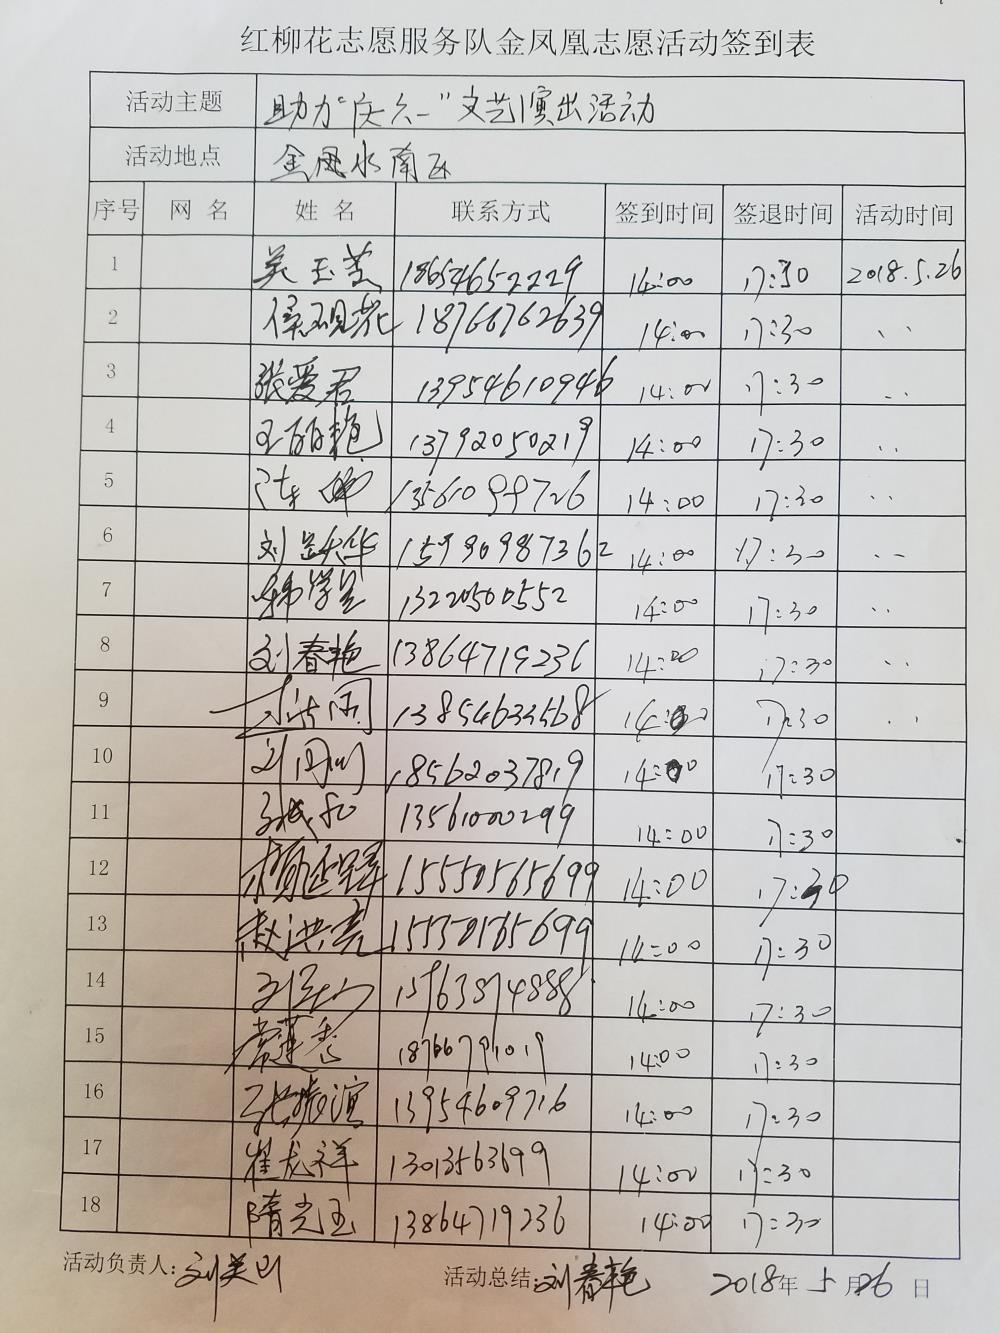 红柳花志愿服务队金凤凰志愿活动签到表
活动主题 助力“庆六一”文艺演出活动
活动地点 金凤水南区
序号 网名 姓名 联系方式 签到时间 签退时间 活动时间
1 吴玉芝 18654652229 14:00 17:30 2018.5.26
2 18766762639 14:00 17:30 ..
3 张爱君 13954610946 14:00 17:30 ..
4 王丽艳 13792050219 14:00 17:30 ..
5 陈娜 13561099726 14:00 17:30 ..
6 刘 15990987362 14:00 17:30 ..
7 韩学 13220500552 14:00 17:30 ..
8 刘春艳 13864719236 14:00 17:30 ..
9 13854633568 14:00 17:30 ..
10 18562037819 14:00 17:30
11 13561000299 14:00 17:30
12 15550565699 14:00 17:30
13 赵洪亮 14:00 17:30
14 刘 15963894888 14:00 17:30
15 常莲香 18766791019 14:00 17:30
16 张 13954609716 14:00 17:30
17 崔龙祥 13013563699 14:00 17:30
18 隋光玉 13864719236 14:00 17:30
活动负责人: 刘美 活动总结: 刘春艳 2018年 5 月 26 日